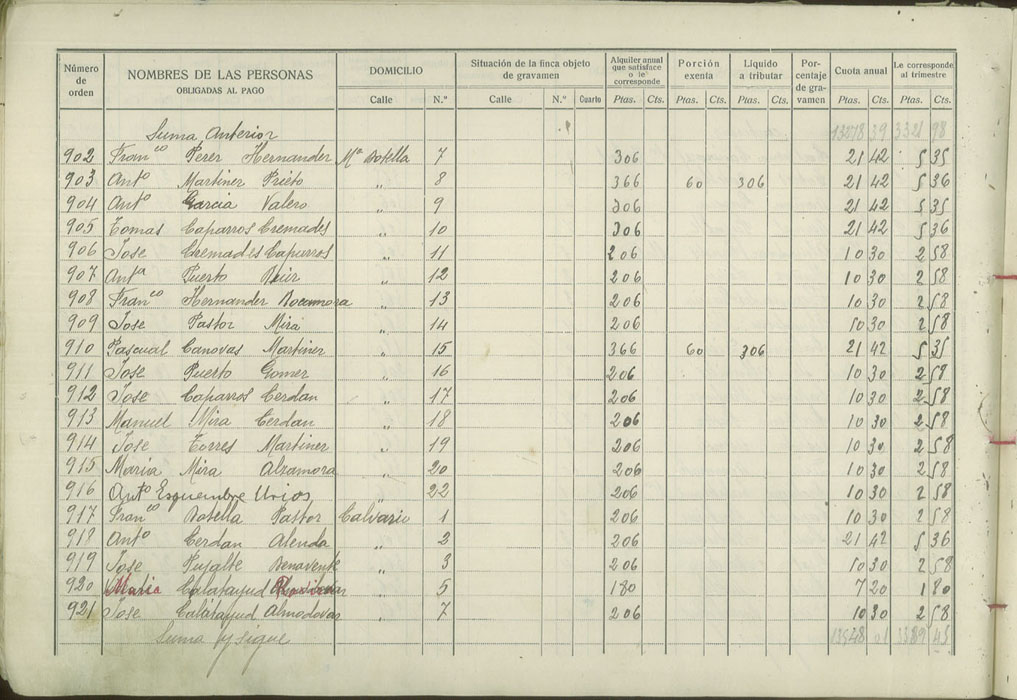 Número de orden | NOMBRES DE LAS PERSONAS OBLIGADAS AL PAGO | DOMICILIO | Situación de la finca objeto de gravamen | Alquiler anual que satisface o le corresponde | Porción exenta | Líquido a tributar | Por-centaje de gra-vamen | Cuota anual | Le corresponde al trimestre
Calle | N.º | Calle | N.º | Cuarto | Ptas. | Cts. | Ptas. | Cts. | Ptas. | Cts. | Ptas. | Cts. | Ptas. | Cts.
Suma Anterior 39 3321 98
902 Franco Perez Hernandez Mª Botella 7 306 21 42 5 35
903 Antº Martinez Prieto " 8 366 60 306 21 42 5 36
904 Antº Garcia Valero " 9 306 21 42 5 35
905 Tomas Caparros Cremades " 10 306 21 42 5 36
906 Jose Cremades Caparros " 11 206 10 30 2 58
907 Antª Puerto " 12 206 10 30 2 58
908 Franco Hernandez Rocamora " 13 206 10 30 2 58
909 Jose Pastor Mira " 14 206 10 30 2 58
910 Pascual Canovas Martinez " 15 366 60 306 21 42 5 35
911 Jose Puerto Gomez " 16 206 10 30 2 58
912 Jose Caparros Cerdan " 17 206 10 30 2 58
913 Manuel Mira Cerdan " 18 206 10 30 2 58
914 Jose Torres Martinez " 19 206 10 30 2 58
915 Maria Mira Alzamora " 20 206 10 30 2 58
916 Antº Esquembre Urios " 22 206 10 30 2 58
917 Franco Botella Pastor Calvario 1 206 10 30 2 58
918 Antº Cerdan Alenda " 2 206 21 42 5 36
919 Jose Pujalte Benavente " 3 206 10 30 2 58
920 Maria Calatayud " 5 180 7 20 1 80
921 Jose Calatayud Almodovar " 7 206 10 30 2 58
Suma y sigue 13548 01 3389 45